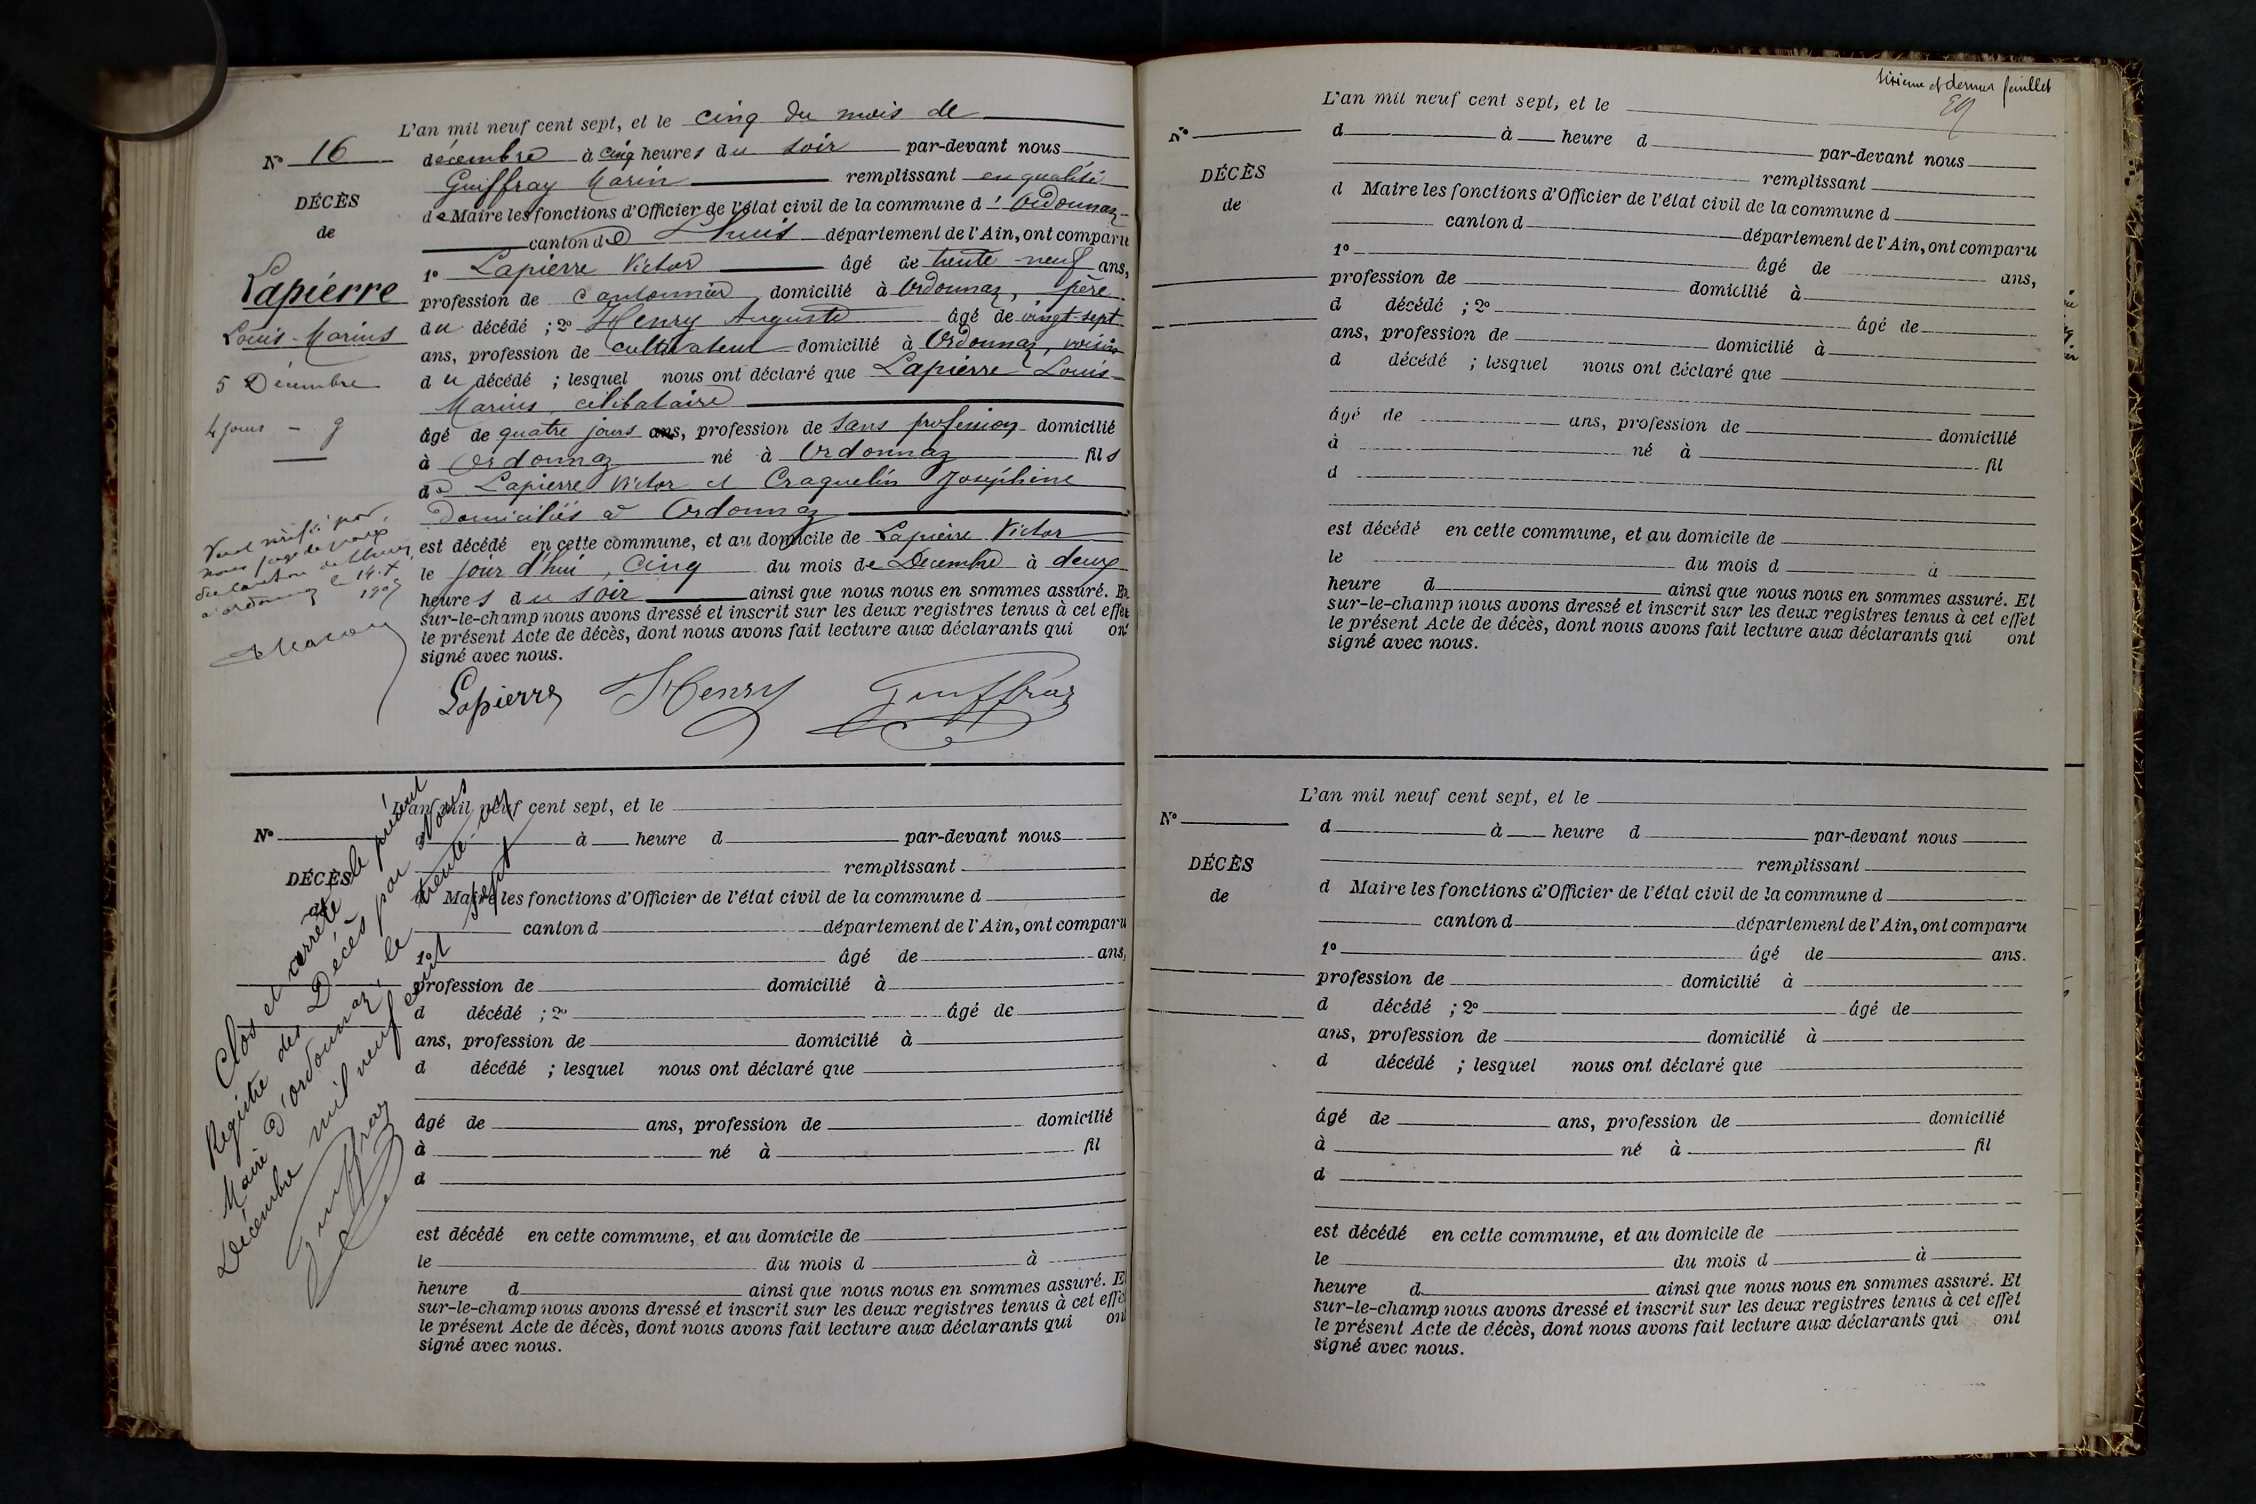 L'an mil neuf cent sept, et le cinq du mois de
N° 16
décembre à cinq heures du soir par-devant nous
Guiffray Marin remplissant en qualité
DÉCÈS
de Maire les fonctions d'Officier de l'état civil de la commune d'Ordonnaz
de
canton de Lhuis département de l'Ain, ont comparu
1° Lapierre Victor âgé de trente-neuf ans,
Lapierre
profession de cantonnier domicilié à Ordonnaz, père
Louis-Marius
du décédé ; 2° Henry Auguste âgé de vingt-sept
ans, profession de cultivateur domicilié à Ordonnaz, voisin
5 Décembre
du décédé ; lesquel nous ont déclaré que Lapierre Louis-
Marius, célibataire
4 jours - g
âgé de quatre jours ans, profession de sans profession domicilié
à Ordonnaz né à Ordonnaz fils
de Lapierre Victor et Craquelin Joséphine
domiciliés à Ordonnaz
Vu et vérifié par
nous juge de paix
du canton de Lhuis
à Ordonnaz le 14.X
190
est décédé en cette commune, et au domicile de Lapierre Victor
le jour d'hui, cinq du mois de Décembre à deux
heures du soir ainsi que nous nous en sommes assuré. Et
sur-le-champ nous avons dressé et inscrit sur les deux registres tenus à cet effet
le présent Acte de décès, dont nous avons fait lecture aux déclarants qui ont
signé avec nous.
Lapierre Henry Guiffray
L'an mil neuf cent sept, et le
N°
d à heure d par-devant nous
remplissant
DÉCÈS
d Maire les fonctions d'Officier de l'état civil de la commune d
canton d département de l'Ain, ont comparu
1° âgé de ans,
profession de domicilié à
d décédé ; 2° âgé de
ans, profession de domicilié à
d décédé ; lesquel nous ont déclaré que
âgé de ans, profession de domicilié
à né à fil
d
est décédé en cette commune, et au domicile de
le du mois d à
heure d ainsi que nous nous en sommes assuré. Et
sur-le-champ nous avons dressé et inscrit sur les deux registres tenus à cet effet
le présent Acte de décès, dont nous avons fait lecture aux déclarants qui ont
signé avec nous.
Clos et arrêté le présent
Registre des Décès par Nous
Maire d'Ordonnaz, le trente un
Décembre mil neuf cent sept
Guiffray
sixième et dernier feuillet
L'an mil neuf cent sept, et le
N°
d à heure d par-devant nous
remplissant
DÉCÈS
d Maire les fonctions d'Officier de l'état civil de la commune d
de
canton d département de l'Ain, ont comparu
1° âgé de ans,
profession de domicilié à
d décédé ; 2° âgé de
ans, profession de domicilié à
d décédé ; lesquel nous ont déclaré que
âgé de ans, profession de domicilié
à né à fil
d
est décédé en cette commune, et au domicile de
le du mois d à
heure d ainsi que nous nous en sommes assuré. Et
sur-le-champ nous avons dressé et inscrit sur les deux registres tenus à cet effet
le présent Acte de décès, dont nous avons fait lecture aux déclarants qui ont
signé avec nous.
L'an mil neuf cent sept, et le
N°
d à heure d par-devant nous
remplissant
DÉCÈS
d Maire les fonctions d'Officier de l'état civil de la commune d
de
canton d département de l'Ain, ont comparu
1° âgé de ans.
profession de domicilié à
d décédé ; 2° âgé de
ans, profession de domicilié à
d décédé ; lesquel nous ont déclaré que
âgé de ans, profession de domicilié
à né à fil
d
est décédé en cette commune, et au domicile de
le du mois d à
heure d ainsi que nous nous en sommes assuré. Et
sur-le-champ nous avons dressé et inscrit sur les deux registres tenus à cet effet
le présent Acte de décès, dont nous avons fait lecture aux déclarants qui ont
signé avec nous.